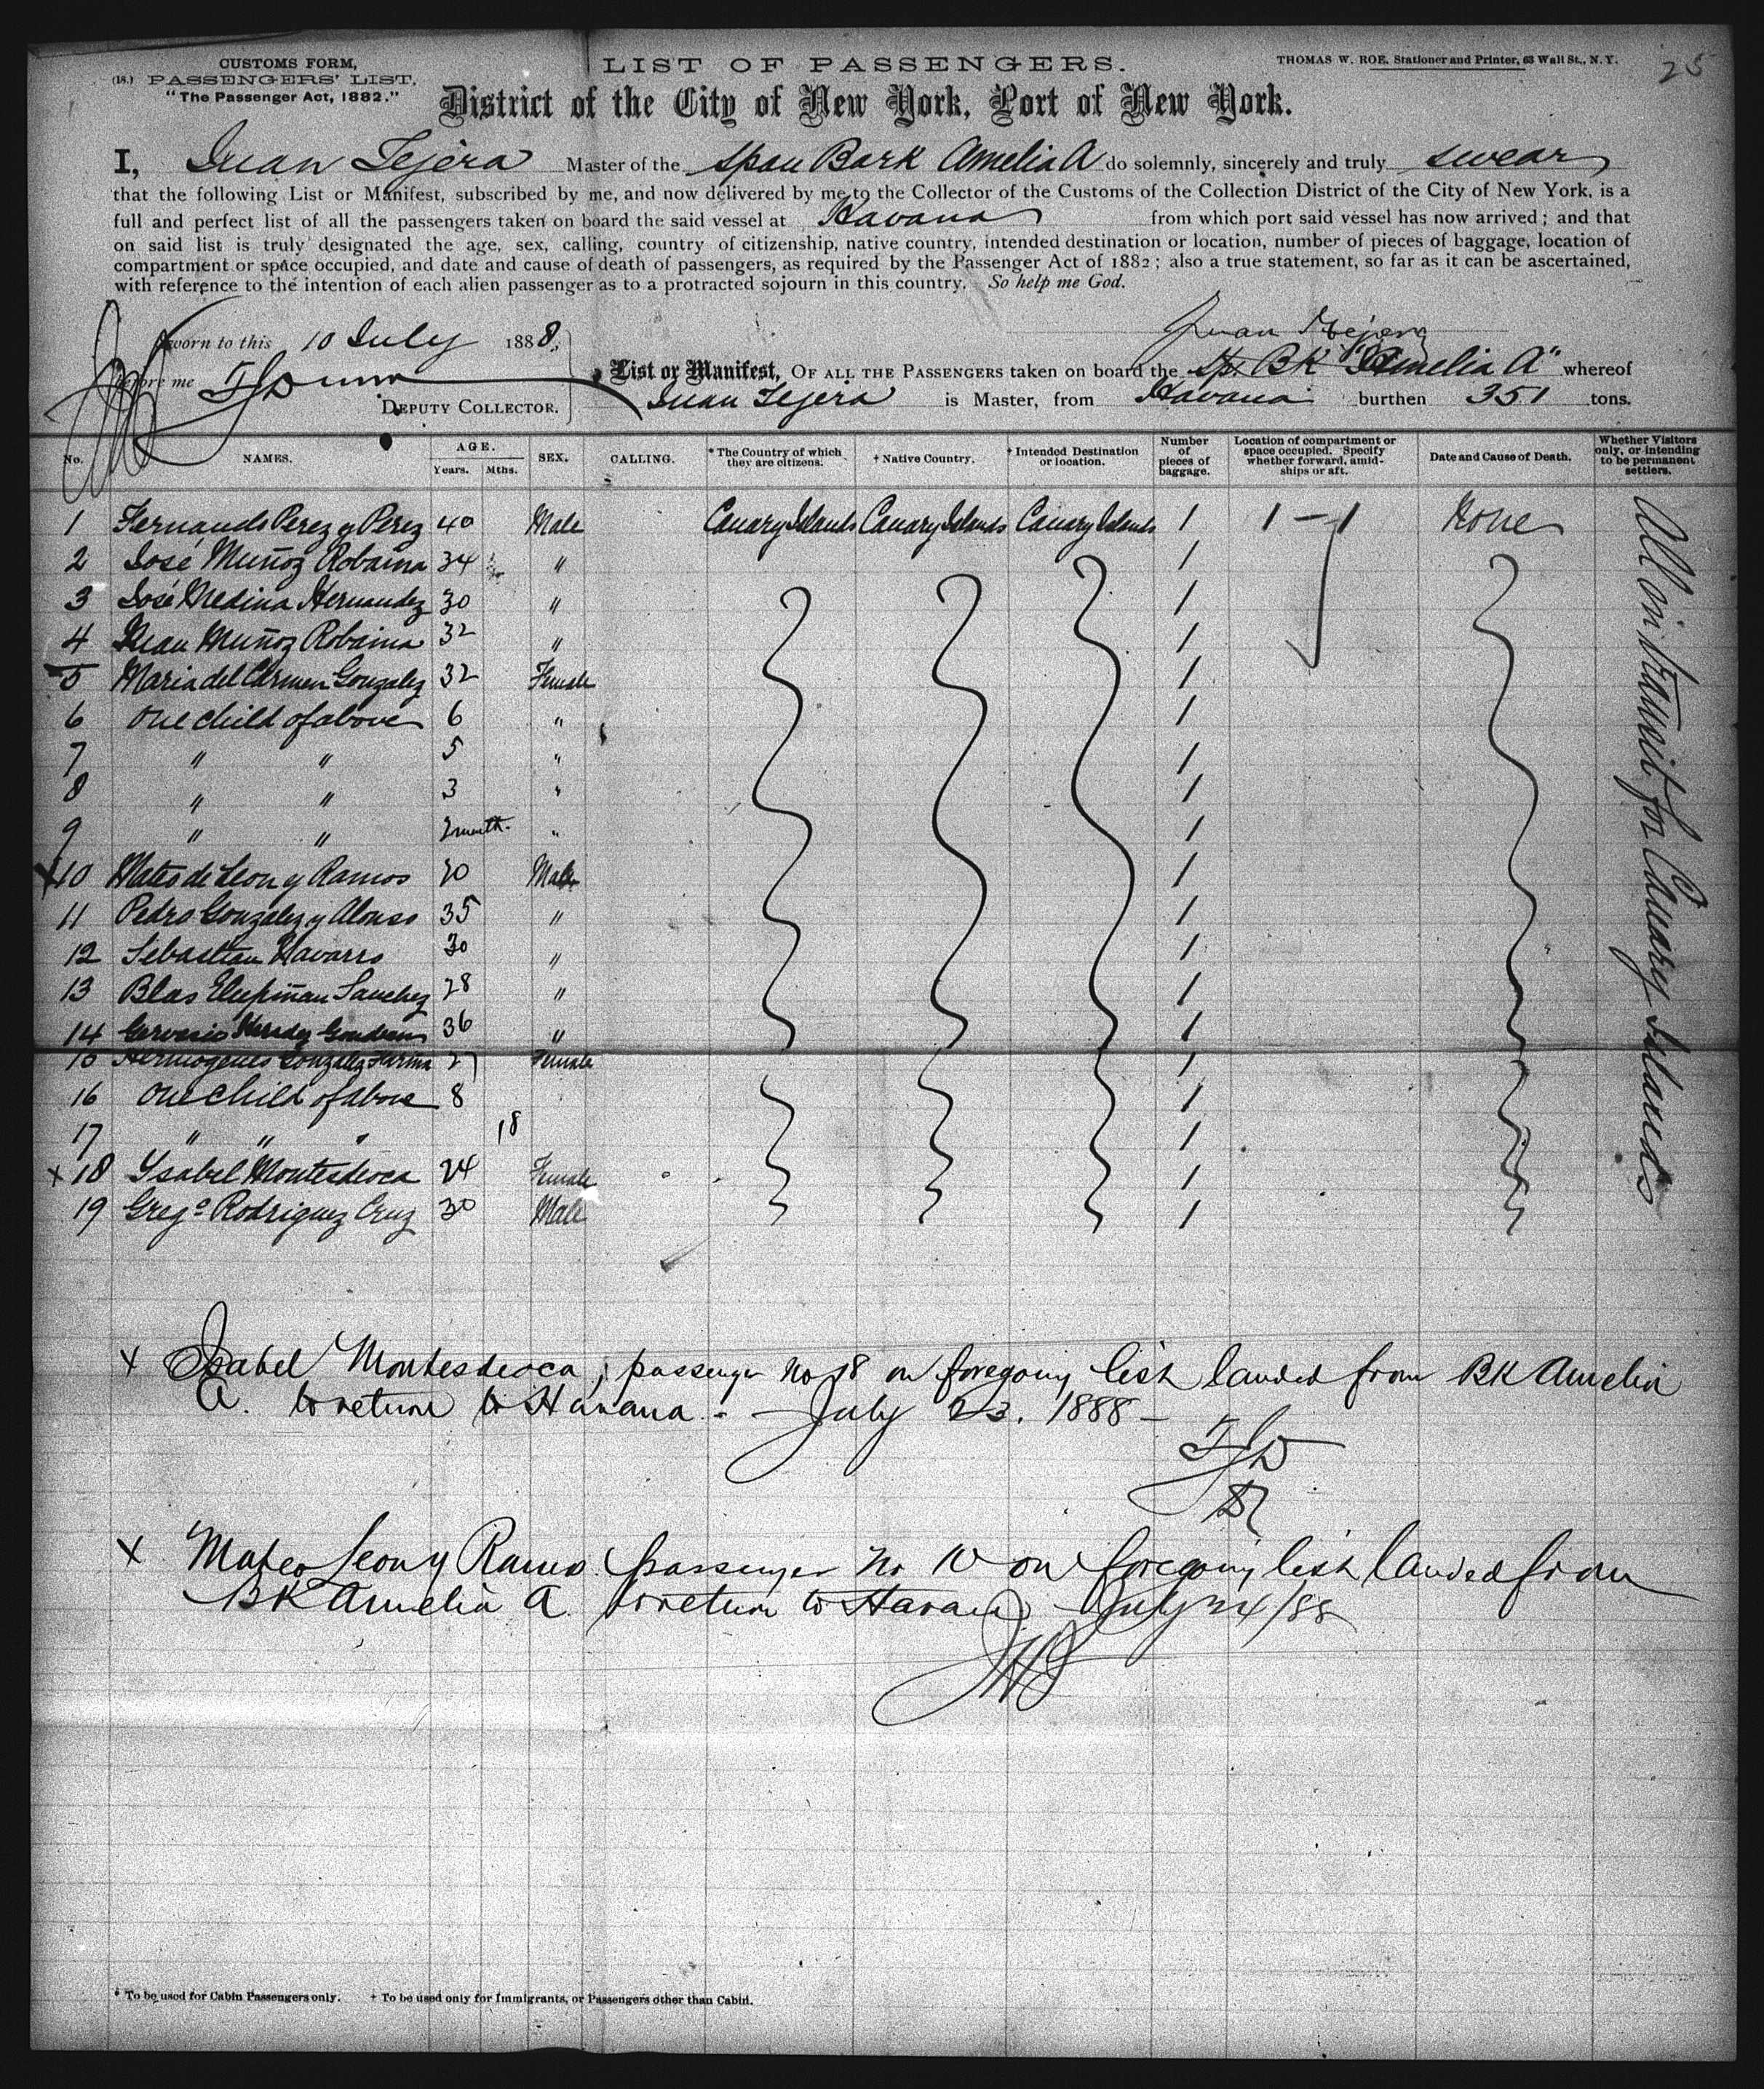 25
CUSTOMS FORM,
(18.) PASSENGERS' LIST,
"The Passenger Act, 1882."
LIST OF PASSENGERS.
THOMAS W. ROE, Stationer and Printer, 63 Wall St., N. Y.
District of the City of New York, Port of New York.
I, Juan Tejera Master of the Span Bark Amelia A do solemnly, sincerely and truly swear
that the following List or Manifest, subscribed by me, and now delivered by me to the Collector of the Customs of the Collection District of the City of New York, is a
full and perfect list of all the passengers taken on board the said vessel at Havana from which port said vessel has now arrived; and that
on said list is truly designated the age, sex, calling, country of citizenship, native country, intended destination or location, number of pieces of baggage, location of
compartment or space occupied, and date and cause of death of passengers, as required by the Passenger Act of 1882; also a true statement, so far as it can be ascertained,
with reference to the intention of each alien passenger as to a protracted sojourn in this country. So help me God.
Juan Tejera
Sworn to this 10 July 1888,
before me
DEPUTY COLLECTOR.
List or Manifest, OF ALL THE PASSENGERS taken on board the Sp. BK "Amelia A" whereof
Juan Tejera is Master, from Havana burthen 351 tons.
No. NAMES. AGE. Years. Mths. SEX. CALLING. * The Country of which they are citizens. † Native Country. † Intended Destination or location. Number of pieces of baggage. Location of compartment or space occupied. Specify whether forward, amidships or aft. Date and Cause of Death. Whether Visitors only, or intending to be permanent settlers.
1 Fernando Perez y Perez 40 Male Canary Islands Canary Islands Canary Islands 1 1 - 1 None
2 José Muñoz Robaina 34 " 1
3 José Medina Hernandez 30 " 1
4 Juan Muñoz Robaina 32 " 1
5 Maria del Carmen Gonzalez 32 Female 1
6 One child of above 6 " 1
7 " " 5 " 1
8 " " 3 " 1
9 " " 2 month " 1
x 10 Mateo de Leon y Ramos 20 Male 1
11 Pedro Gonzalez y Alonso 35 " 1
12 Sebastian Navarro 30 " 1
13 Blas Sanchez 28 " 1
14 Gervasio 36 " 1
15 Hermogenes Gonzalez 27 Female 1
16 One child of above 8 1
17 " " " 18 1
x 18 Ysabel Montesdeoca 24 Female 1
19 Grego Rodriguez Cruz 30 Male 1
All in transit for Canary Islands
x Isabel Montesdeoca, passenger no 18 on foregoing list landed from BK Amelia
A. to return to Havana. - July 23. 1888 -
x Mateo Leon y Ramos passenger no 10 on foregoing list landed from
BK Amelia A. to return to Havana July 24/88
* To be used for Cabin Passengers only. † To be used only for Immigrants, or Passengers other than Cabin.